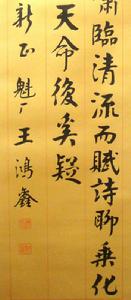 嘯臨清流而賦詩聊乘化
天命復奚疑
新正魁厂王鴻鑫